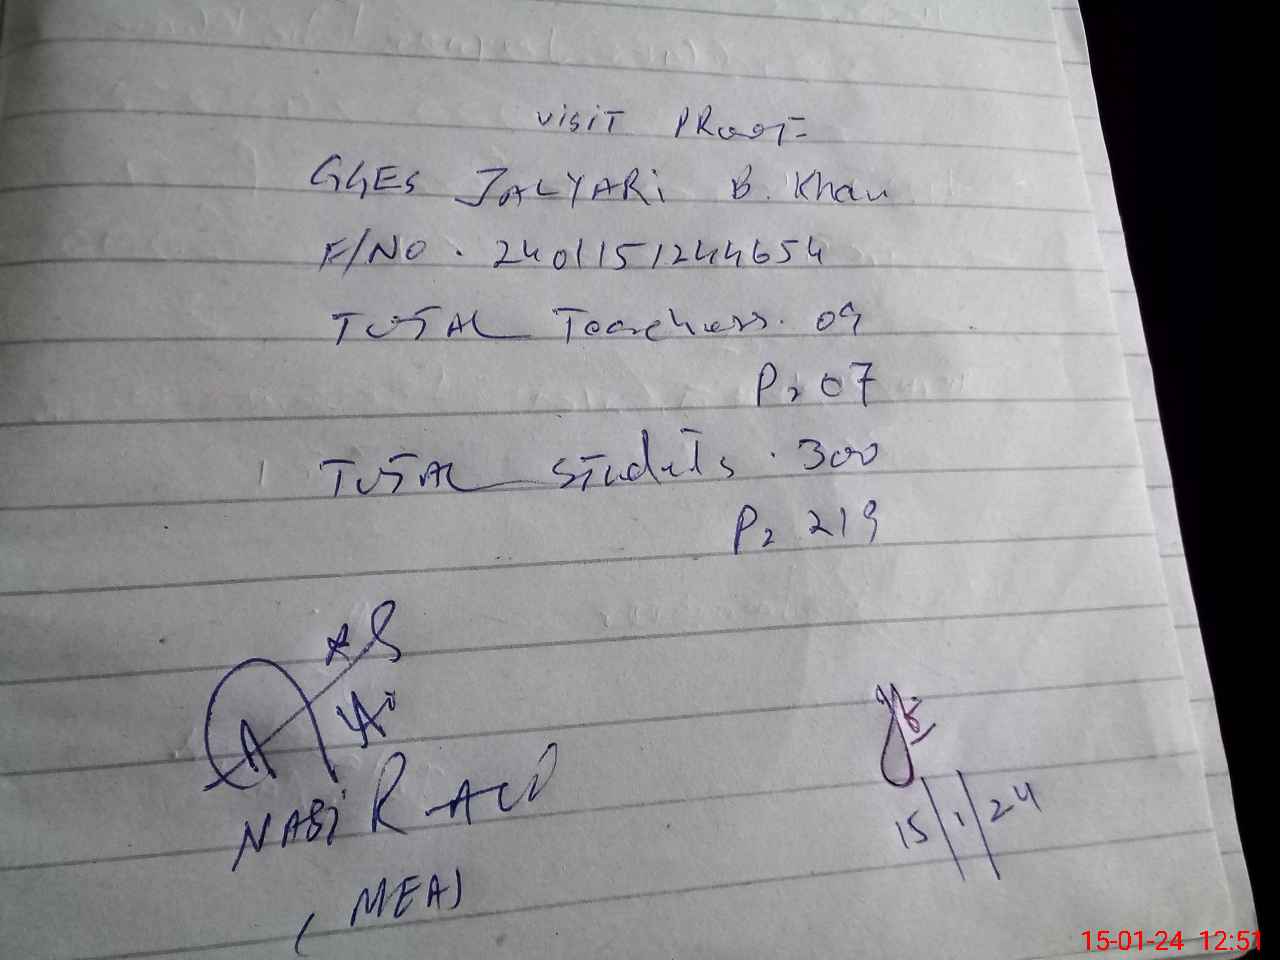 Visit PRoof
GGES JALYARi B. Khan
F/NO . 2401151244654
TOTAL Teachers. 09
P, 07
TOTAL Students . 300
P, 219
NABi
(MEA)
15/1/24
15-01-24 12:51